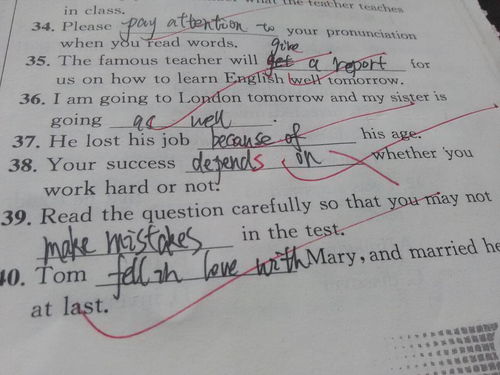 in class. what the teacher teaches
34. Please pay attention to your pronunciation
when you read words.
give
35. The famous teacher will get a report for
us on how to learn English well tomorrow.
36. I am going to London tomorrow and my sister is
going as well.
37. He lost his job because of his age.
38. Your success depends on whether you
work hard or not.
39. Read the question carefully so that you may not
make mistakes in the test.
40. Tom fell in love with Mary, and married he
at last.